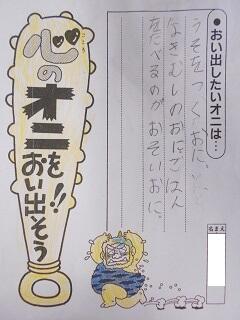 ●おい出したいオニは…
うそをつくおに、
なきむしのおに、ごはん
をたべるのがおそいおに。
心のオニを
おい出そう!!
なまえ